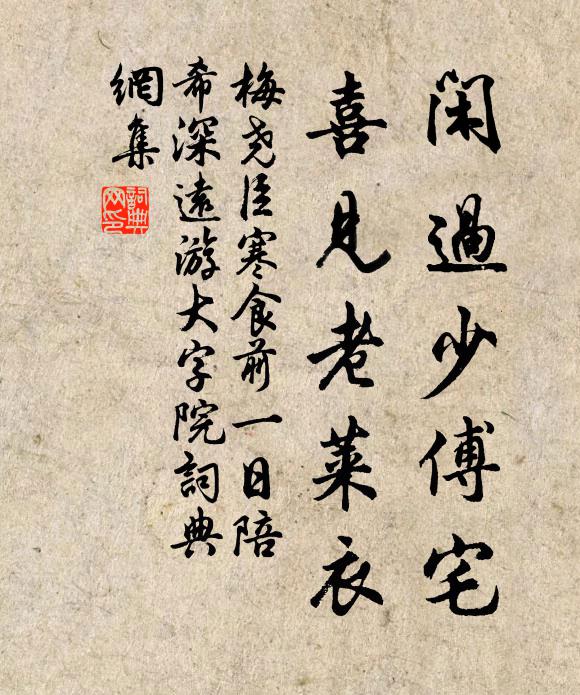 閑過少傅宅
喜見老萊衣
梅堯臣寒食前一日陪
希深遠游大字院詞典
網集
詞典
网印